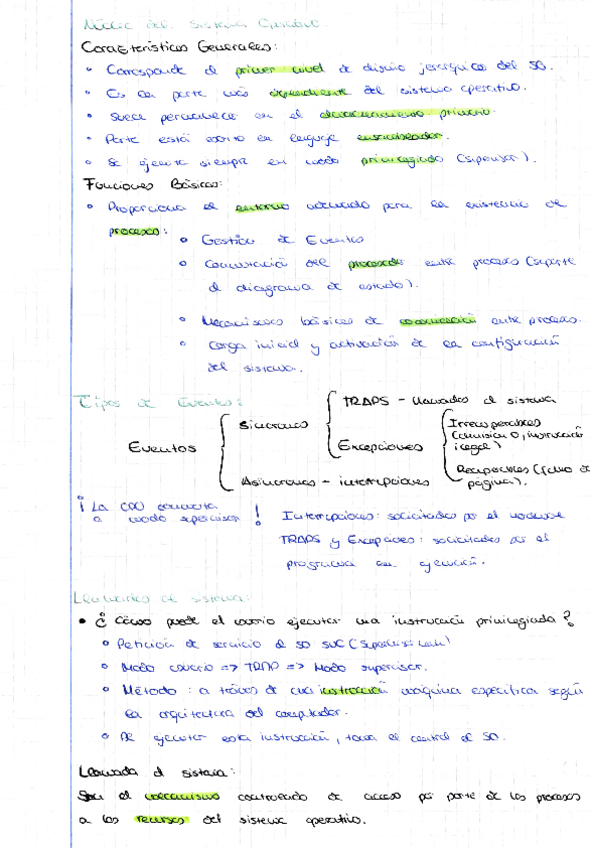 Núcleo del Sistema Operativo
Características Generales:
• Corresponde al primer nivel de diseño jerárquico del SO.
• Es la parte más dependiente del sistema operativo.
• Suele permanecer en el almacenamiento primario.
• Parte está escrito en lenguaje ensamblador.
• Se ejecuta siempre en modo privilegiado (supervisor).
Funciones Básicas:
• Proporciona el entorno adecuado para la existencia de
procesos:
• Gestión de Eventos
• Conmutación del procesador entre procesos (soporte
al diagrama de estado).
• Mecanismos básicos de comunicación entre procesos.
• Carga inicial y activación de la configuración
del sistema.
Tipos de Eventos:
TRAPS - Llamadas al sistema
Síncronos
Irrecuperables
(división 0, instrucción
ilegal)
Eventos
Excepciones
Recuperables (fallo de
página).
Asíncronos - interrupciones
¡La CPU conmuta
a modo supervisor!
Interrupciones: solicitadas por el hardware
TRAPS y Excepciones: solicitadas por el
programa en ejecución.
Llamadas al sistema:
• ¿Cómo puede el usuario ejecutar una instrucción privilegiada?
• Petición de servicio al SO SVC (Supervisor
• Modo usuario => TRAP => Modo supervisor.
• Método: a través de una instrucción máquina específica según
la arquitectura del computador.
• Al ejecutar esta instrucción, toma el control el SO.
Llamada al sistema:
Son el mecanismo controlado de acceso por parte de los procesos
a los recursos del sistema operativo.